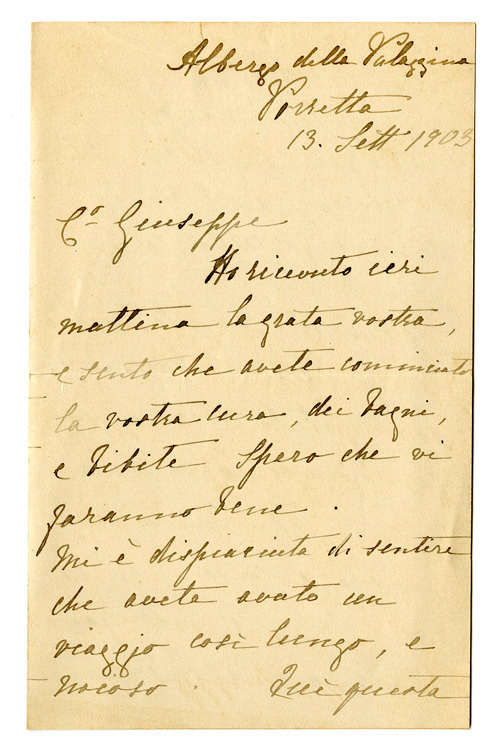 Albergo della Palazzina
Porretta
13. Sett 1903
Co Giuseppe
Ho ricevuto ieri
mattina la grata vostra,
e sento che avete comminciato
la vostra cura, dei bagni,
e bibite Spero che vi
faranno bene.
Mi è dispiaciuta di sentire
che avete avuto un
viaggio così lungo, e
noioso. Quì questa